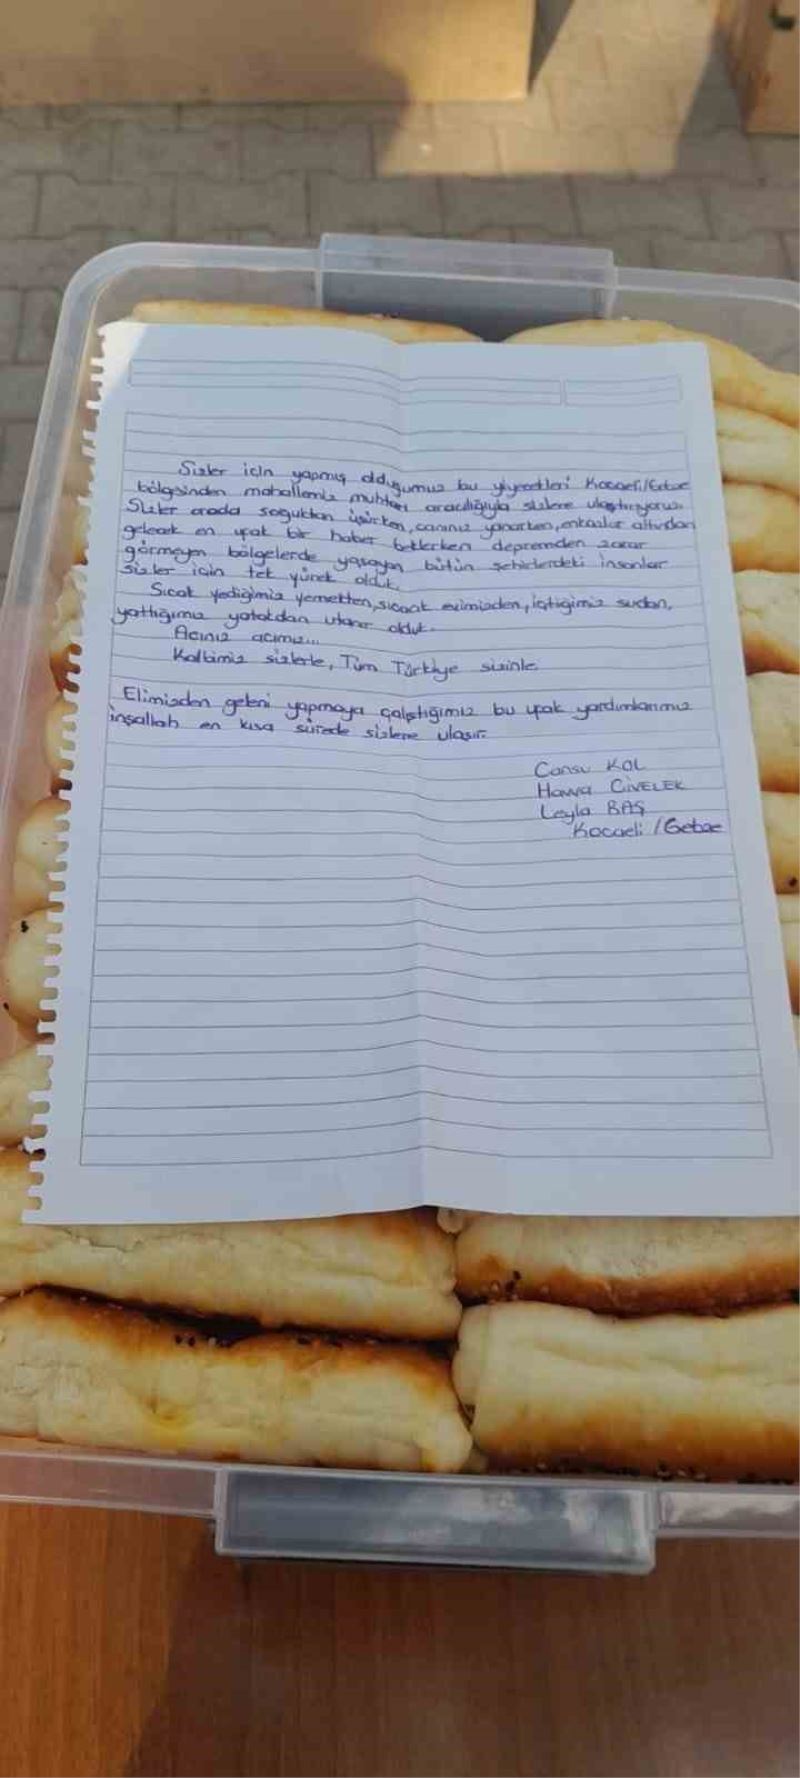 Sizler için yapmış olduğumuz bu yiyecekleri Kocaeli/Gebze
bölgesinden mahallemiz muhtarı aracılığıyla sizlere ulaştırıyoruz.
Sizler orada soğuktan üşürken, canınız yanarken, enkazlar altından
gelecek en ufak bir haber beklerken depremden zarar
görmeyen bölgelerde yaşayan bütün şehirlerdeki insanlar
sizler için tek yürek olduk.
Sıcak yediğimiz yemekten, sıcacık evimizden, içtiğimiz sudan,
yattığımız yataktan utanır olduk.
Acınız acımız...
Kalbimiz sizlerle, Tüm Türkiye sizinle
Elimizden geleni yapmaya çalıştığımız bu ufak yardımlarımız
inşallah en kısa sürede sizlere ulaşır.
Cansu KOL
Havva CİVELEK
Leyla BAŞ
Kocaeli / Gebze